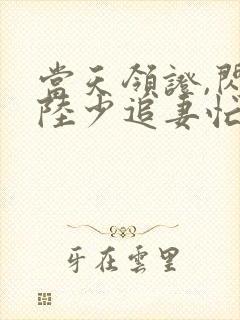 當天領證,閃
陸少追妻忙
牙在雲里